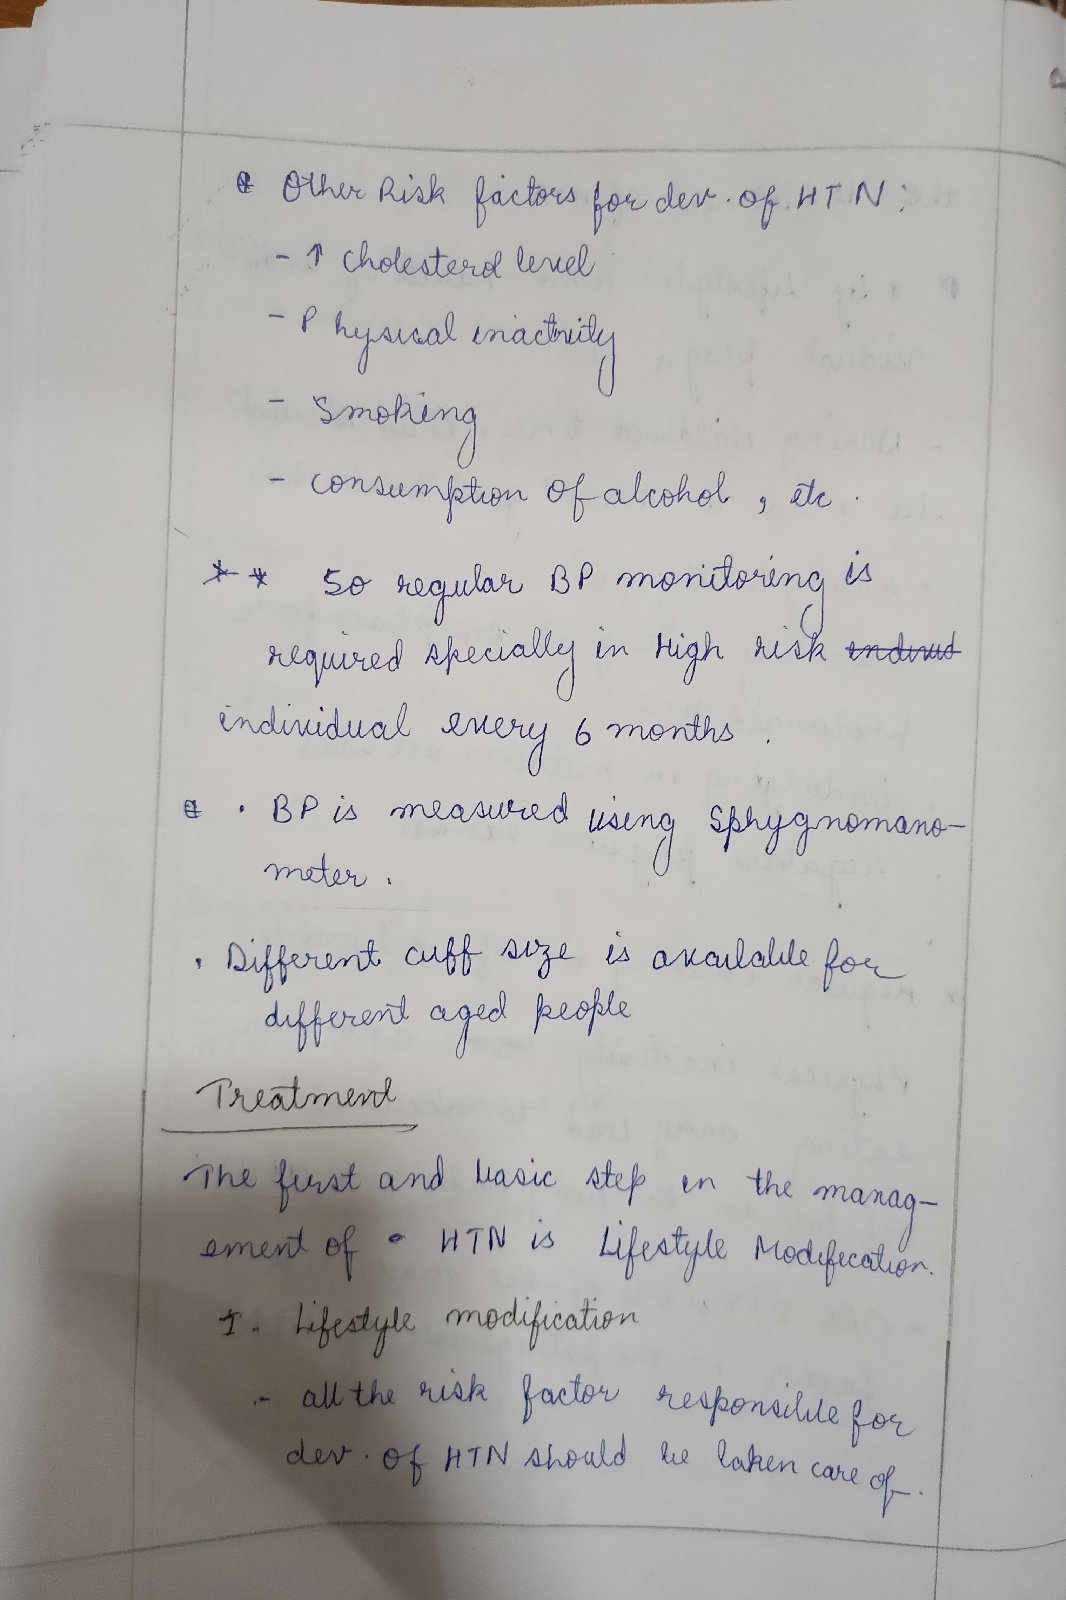 Other Risk factors for dev. of HTN:
- ↑ cholesterol level
- Physical inactivity
- Smoking
- consumption of alcohol, etc.
** So regular BP monitoring is
required specially in High risk
individual every 6 months.
• BP is measured using Sphygnomano-
meter.
• Different cuff size is available for
different aged people
Treatment
The first and basic step in the manag-
ement of • HTN is Lifestyle Modification.
1. Lifestyle modification
- all the risk factor responsible for
dev. of HTN should be taken care of.